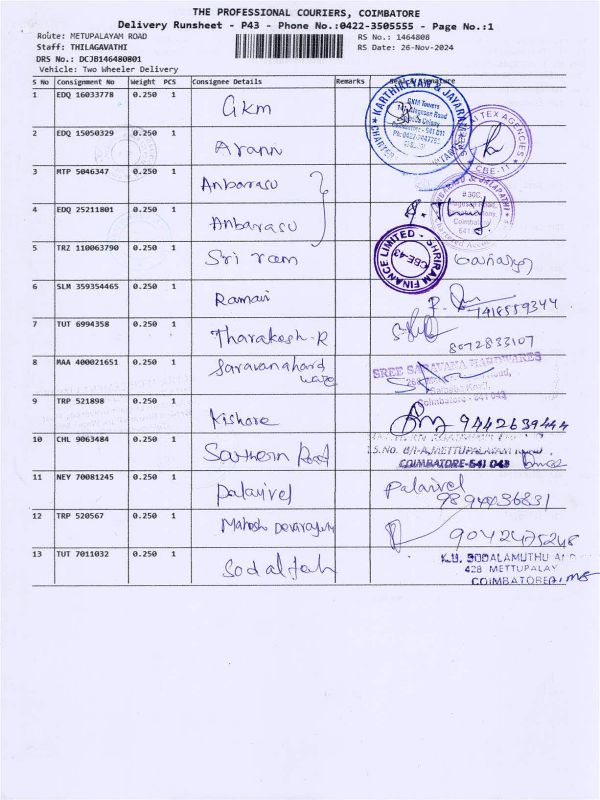 THE PROFESSIONAL COURIERS, COIMBATORE
Delivery Runsheet - P43 - Phone No.:0422-3505555 - Page No.:1
Route: METUPALAYAM ROAD RS No.: 1464808
Staff: THILAGAVATHI RS Date: 26-Nov-2024
DRS No.: DCJB146480801
Vehicle: Two Wheeler Delivery
S No Consignment No Weight PCS Consignee Details Remarks Seal & Signature
1 EDQ 16033778 0.250 1 GKM
KARTHIKEYAN & JAYARAM
GKM Towers
2 EDQ 15050329 0.250 1 Arann
TEX AGENCIES
CBE-11
3 MTP 5046347 0.250 1 Anbarasu
4 EDQ 25211801 0.250 1 Anbarasu
5 TRZ 110063790 0.250 1 Sri ram
SHRIRAM FINANCE LIMITED
CBE-43
6 SLM 359354465 0.250 1 Ramani
7418559344
7 TUT 6994358 0.250 1 Tharakesh.R
8072833107
8 MAA 400021651 0.250 1 Saravanahard
ware
SREE SARAVANA HARDWARES
Coimbatore - 641 043
9 TRP 521898 0.250 1 Kishore 9442639444
10 CHL 9063484 0.250 1 Southern Road
METTUPALAYAM
COIMBATORE-641 043
11 NEY 70081245 0.250 1 Palanivel Palanivel
12 TRP 520567 0.250 1 Mahesh Devarajulu
9042475248
13 TUT 7011032 0.250 1
K.U. SODALAMUTHU AND
428 METTUPALAY
COIMBATORE